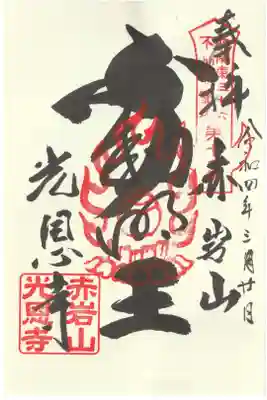 奉拝 赤岩山
令和四年三月廿日
不動明王
光恩寺
赤岩山
光恩寺